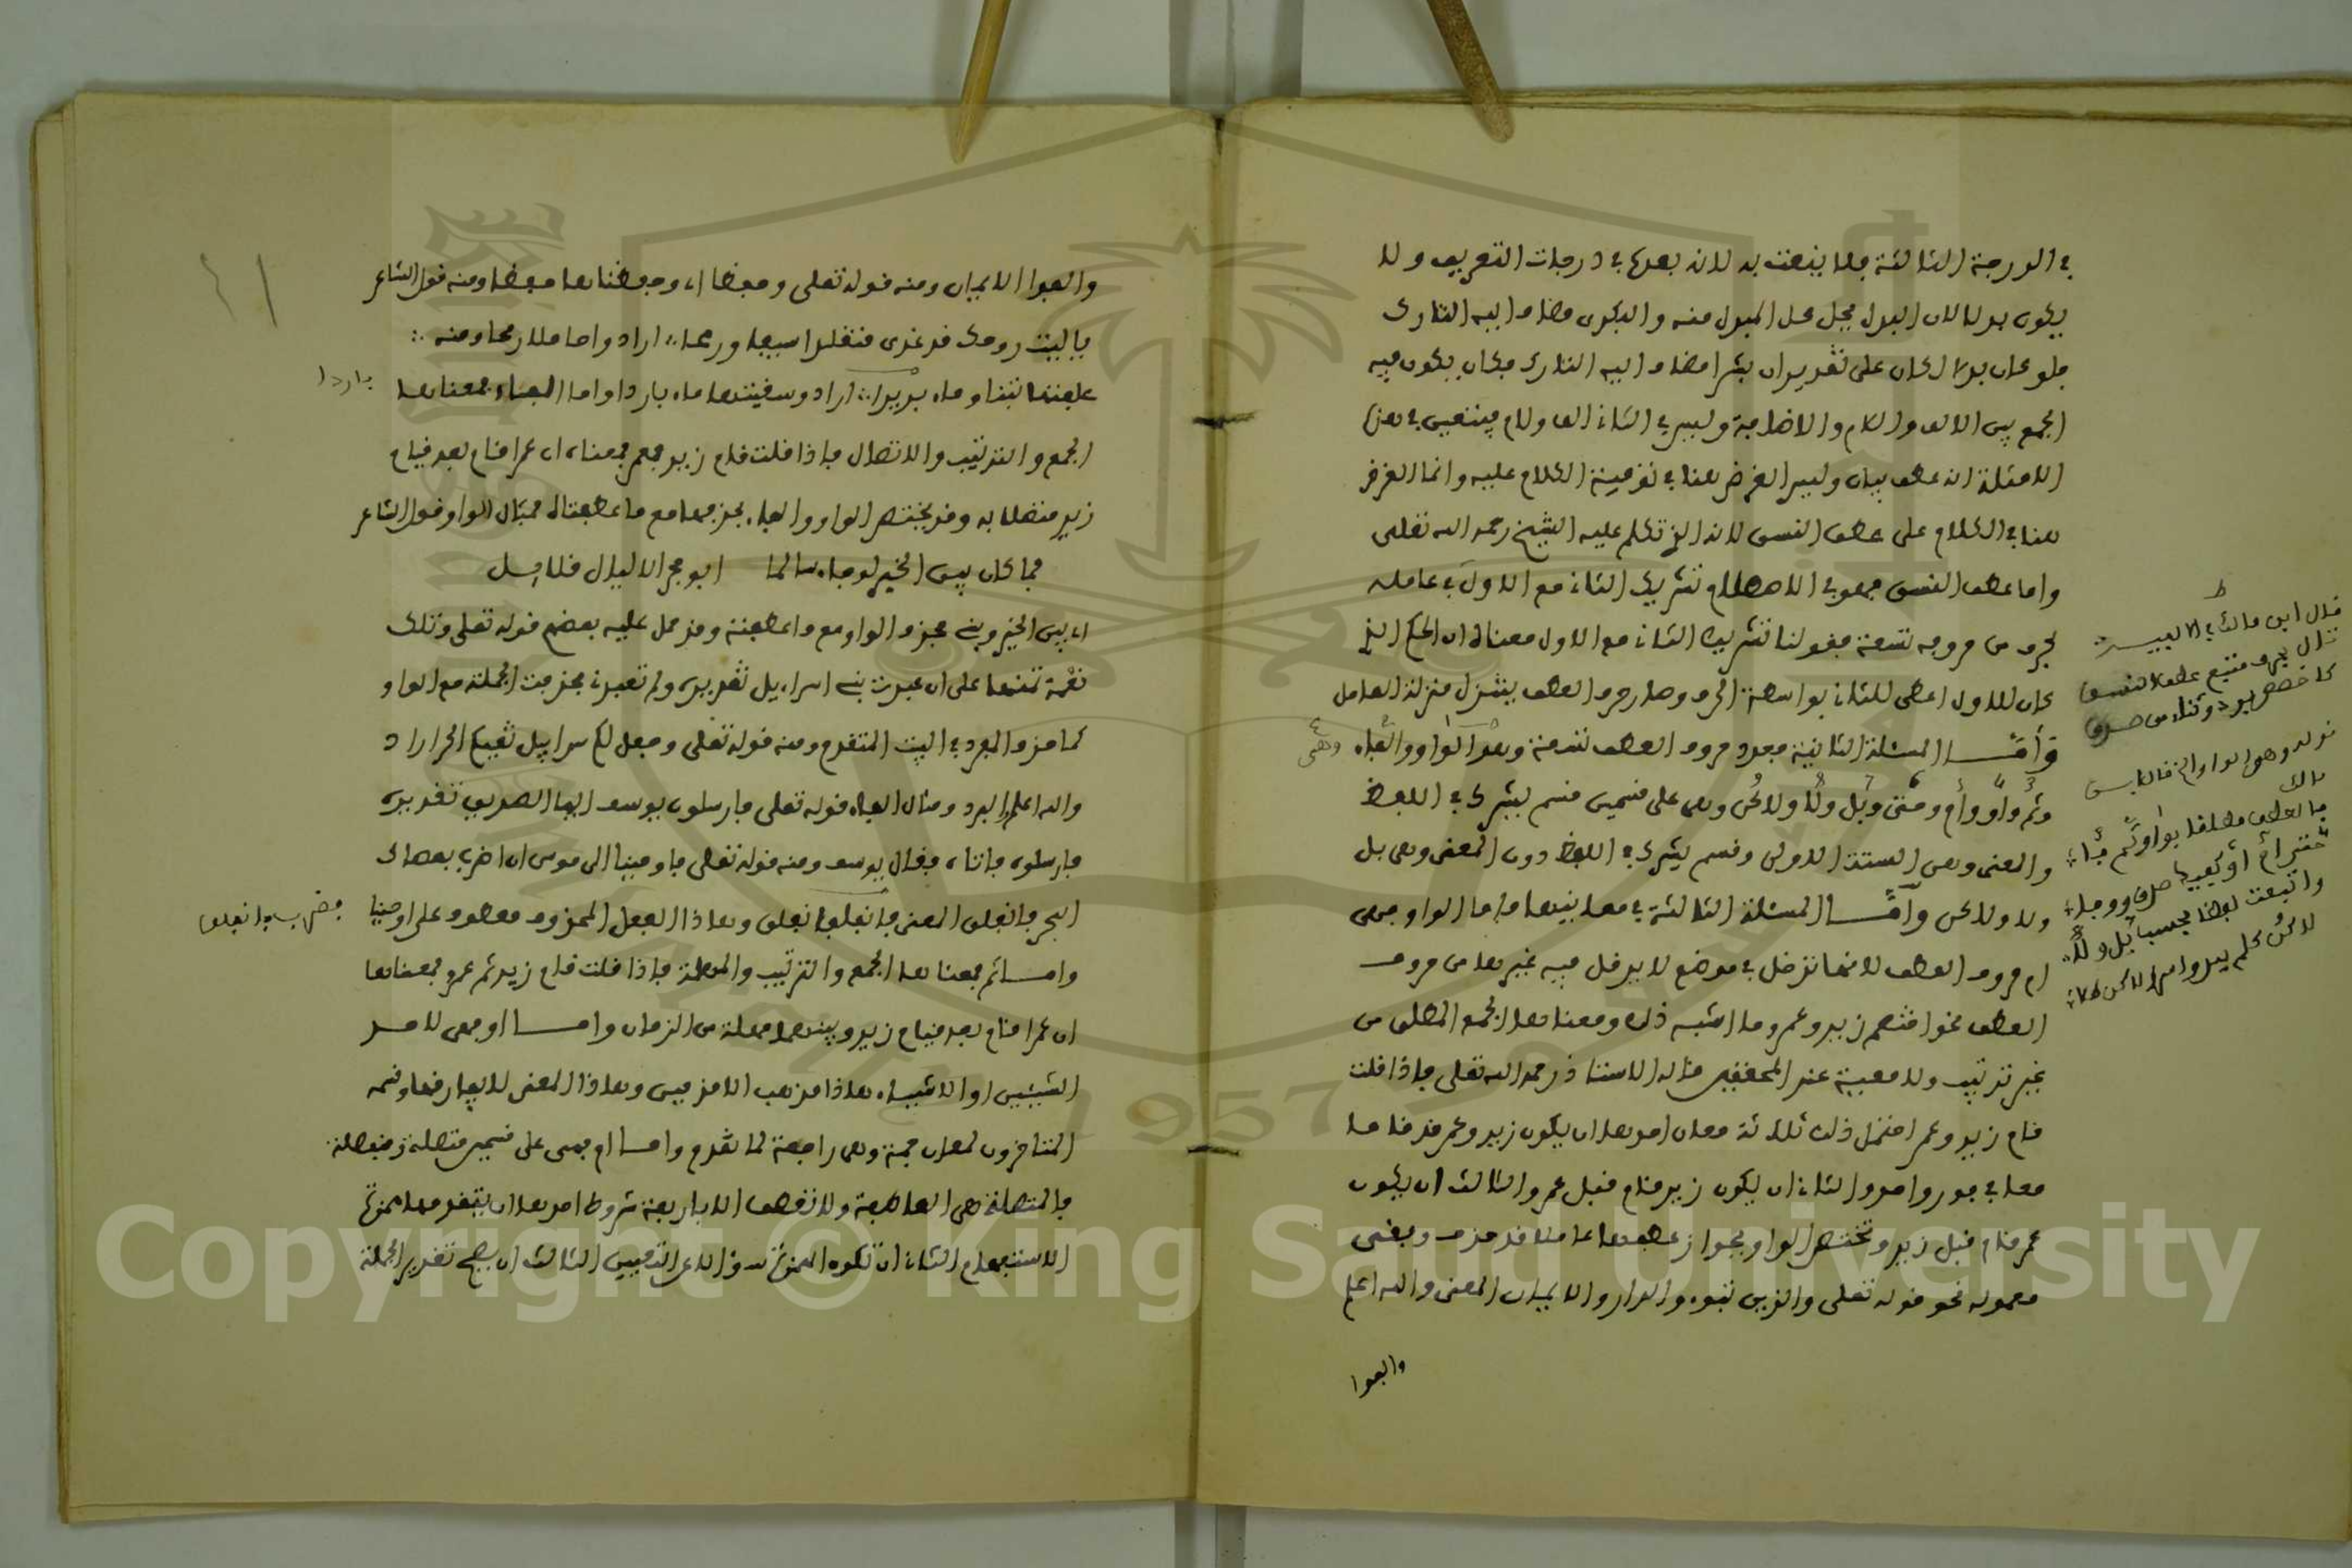 في الدرجة الثالثة فلا ينعت به لانه بعدها في درجات التعريف ولا
يكون بدلا لان البدل يحل محل المبدل منه والبكري مضاف اليه التارك
فلو كان بدلا لكان على تقدير ان بشرا مضاف اليه التارك فكان يكون فيه
الجمع بين الالف واللام والاضافة وليس في الثاني الف ولام فيتعين في هذا
الامثلة انه عطف بيان وليس الغرض هنا في توفية الكلام عليه وانما الغرض
هنا في الكلام على عطف النسق لانه الذي تكلم عليه الشيخ رحمه الله تعلى
واما عطف النسق فهو في الاصطلاح تشريك الثاني مع الاول في عامله
بحرف من حروفه تسعة فقولنا تشريك الثاني مع الاول معناه ان الحكم الذي
كان للاول اعطي للثاني بواسطة الحرف وصار حرف العطف يتنزل منزلة العامل
وأمّا المسئلة الثانية فعدد حروف العطف تسعة وهي الواو والفاء
وثم وأو وأم وحتى وبل ولا ولاكن وهي على قسمين قسم يشرك في اللفظ
والمعنى وهي الستة الاولى وقسم يشرك في اللفظ دون المعنى وهي بل
ولا ولاكن وأمّا المسئلة الثالثة في معانيها فاما الواو فهي
ام حروف العطف لانها تدخل في موضع لا يدخل فيه غيرها من حروف
العطف نحو اختصم زيد وعمرو وما اشبه ذلك ومعناها الجمع المطلق من
غير ترتيب ولا معية عند المحققين قاله الاستاذ رحمه الله تعلى فاذا قلت
قام زيد وعمرو احتمل ذلك ثلاثة معان احدها ان يكون زيد وعمرو قد قاما
معا في فور واحد والثاني ان يكون زيد قام قبل عمرو والثالث ان يكون
عمرو قام قبل زيد وتختص الواو بجواز عطفها عاملا قد حذف وبقي
معموله نحو قوله تعلى والذين تبوءو الدار والايمان المعنى والله اعلم
والفوا
قال ابن مالك في الالفية
تال بحرف متبع عطف النسق
كاخصص بود وثناء من صدق
قوله وهي الواو الخ قال ابن
مالك
فالعطف مطلقا بواو ثم فا
حتى أم أو كفيك صدق ووفا
واتبعت لفظا فحسب بل ولا
لاكن كلم يبد امرؤ لاكن طلا
والفوا الايمان ومنه قوله تعلى وحفظا اي وحفظناها حفظا ومنه قول الشاعر
ياليت زوجك قد غدى متقلدا سيفا ورمحا اراد وحاملا رمحا ومنه
علفتها تبنا وماء باردا اراد وسقيتها ماء باردا واما الفاء فمعناها
باردا
الجمع والترتيب والاتصال فاذا قلت قام زيد فعمرو فمعناه ان عمرا قام بعد قيام
زيد متصلا به وقد يختص الواو والفاء بحذفهما مع ما عطفتا فمثال الواو قول الشاعر
فما كان بين الخير لو جاء سالما ابو حجر الا ليال قلايل
اي بين الخير وبيني فحذف الواو مع ما عطفته وقد حمل عليه بعضهم قوله تعلى وتلك
نعمة تمنها على ان عبدت بني اسراءيل تقديره ولم تعبدني فحذفت الجملة مع الواو
كما حذف المفرد في البيت المتقدم ومنه قوله تعلى وجعل لكم سرابيل تقيكم الحر اراد
والله اعلم والبرد ومثال الفاء قوله تعلى فارسلون يوسف ايها الصديق تقديره
فارسلوه فاتاه فقال يوسف ومنه قوله تعلى فاوحينا الى موسى ان اضرب بعصاك
البحر فانفلق المعنى فانفلق وهاذا الفعل المحذوف معطوف على اوحينا
فضرب فانفلق
واما ثم فمعناها الجمع والترتيب والمهلة فاذا قلت قام زيد ثم عمرو فمعناها
ان عمرا قام بعد قيام زيد وبينهما مهلة من الزمان واما او فهي لاحد
الشيئين او الاشياء هاذا مذهب الاقدمين وهاذا المعنى لا يفارقها وقسمه
المتاخرون لمعان جمة وهي راجعة لما تقدم واما ام فهي على قسمين متصلة ومنفصلة
فالمتصلة هي العاطفة ولا تعطف الا باربعة شروط احدها ان يتقدمها همزة
الاستفهام الثاني ان تكون الهمزة سؤالا عن التعيين الثالث ان يصح تقدير الجملة
Copyright © King Saud University
1957